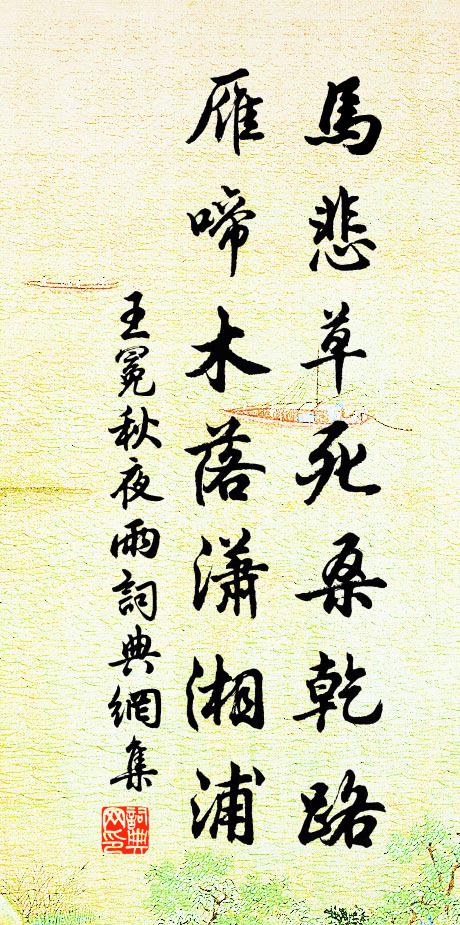 馬悲草死桑乾路
雁啼木落瀟湘浦
王冕秋夜雨詞典網集
詞典
网印